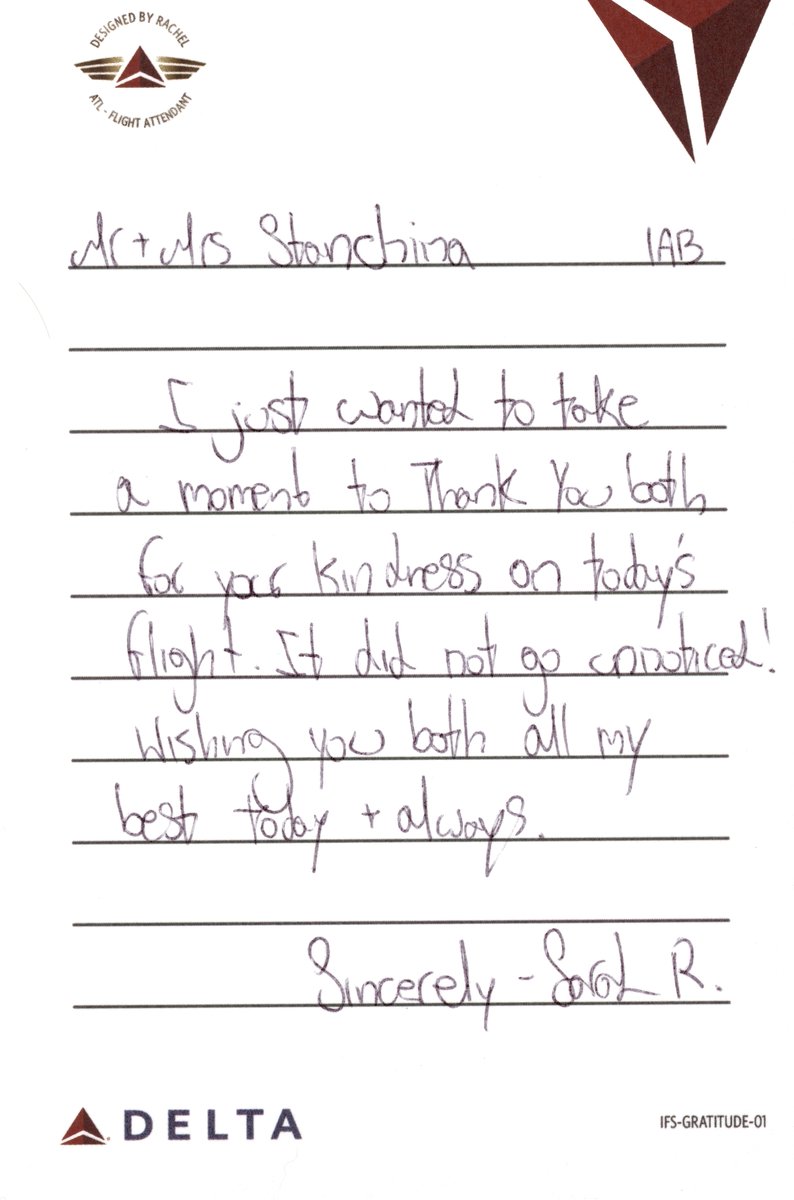 DESIGNED BY RACHEL
ATL - FLIGHT ATTENDANT
Mr + Mrs Stanchina 1AB
I just wanted to take
a moment to Thank You both
for your kindness on today's
flight. It did not go unnoticed!
Wishing you both all my
best today + always.
Sincerely - Sarah R.
DELTA
IFS-GRATITUDE-01